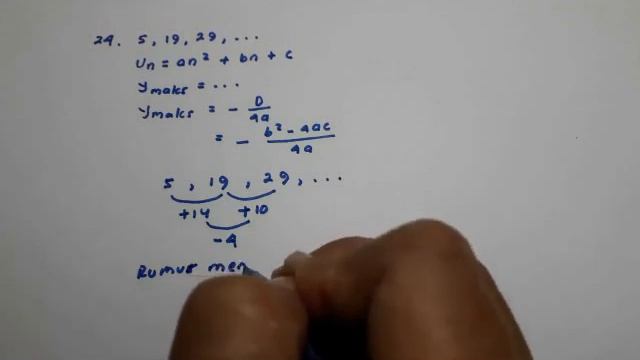 24. 5, 19, 29, ...
Un = an² + bn + c
y maks = ...
y maks = - D/4a
= - b² - 4ac/4a
5, 19, 29, ...
+14 +10
-4
Rumus men